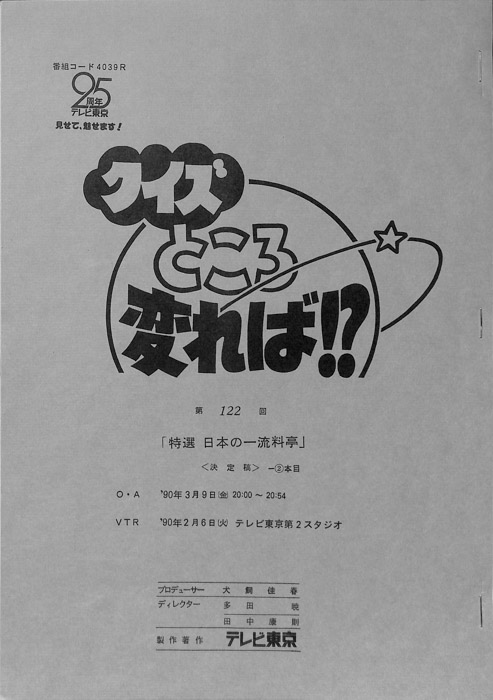 番組コード4039R
25
周年
テレビ東京
見せて、魅せます!
クイズ
ところ
変れば!?
第 122 回
「特選 日本の一流料亭」
<決定稿> ー②本目
O・A '90年3月9日(金) 20:00～20:54
VTR '90年2月6日(火) テレビ東京第2スタジオ
プロデューサー 犬飼佳春
ディレクター 多田暁
田中康則
製作著作 テレビ東京